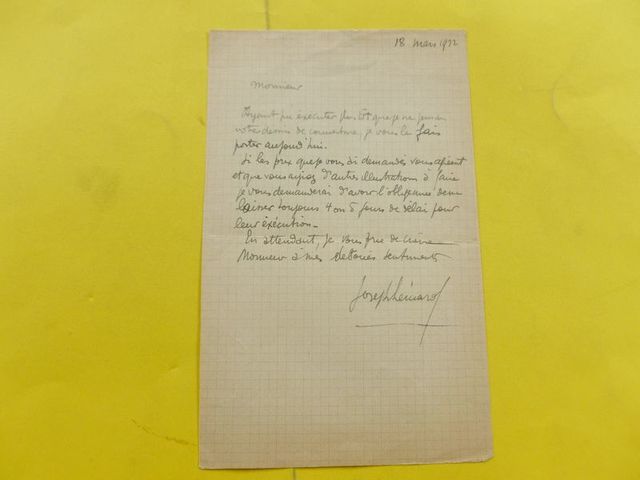 18 mars 1922
Monsieur
Ayant pu exécuter plus tôt que je ne pensais
votre dessin de couverture, je vous le fais
porter aujourd'hui.
Si les prix que je vous ai demandés vous agréent
et que vous ayiez d'autres illustrations à faire
je vous demanderai d'avoir l'obligeance de me
laisser toujours 4 ou 5 jours de délai pour
leur exécution.
En attendant, je vous prie de croire
Monsieur à mes dévoués sentiments
Joseph Hémard